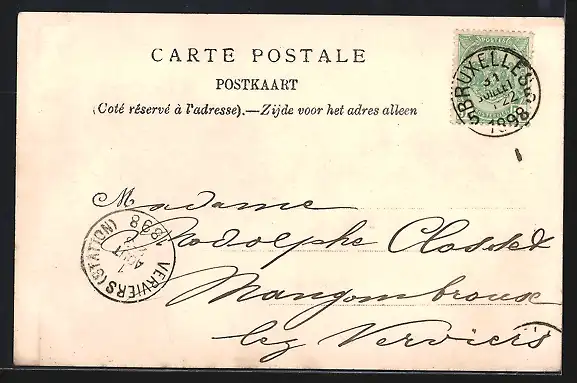 CARTE POSTALE
POSTKAART
(Coté réservé à l'adresse).—Zijde voor het adres alleen
BRUXELLES 5
31
JUILLET
22
1898
Madame
Rodolphe Closset
Mangombroux
lez Verviers
VERVIERS (STATION)
1
AOUT
1898